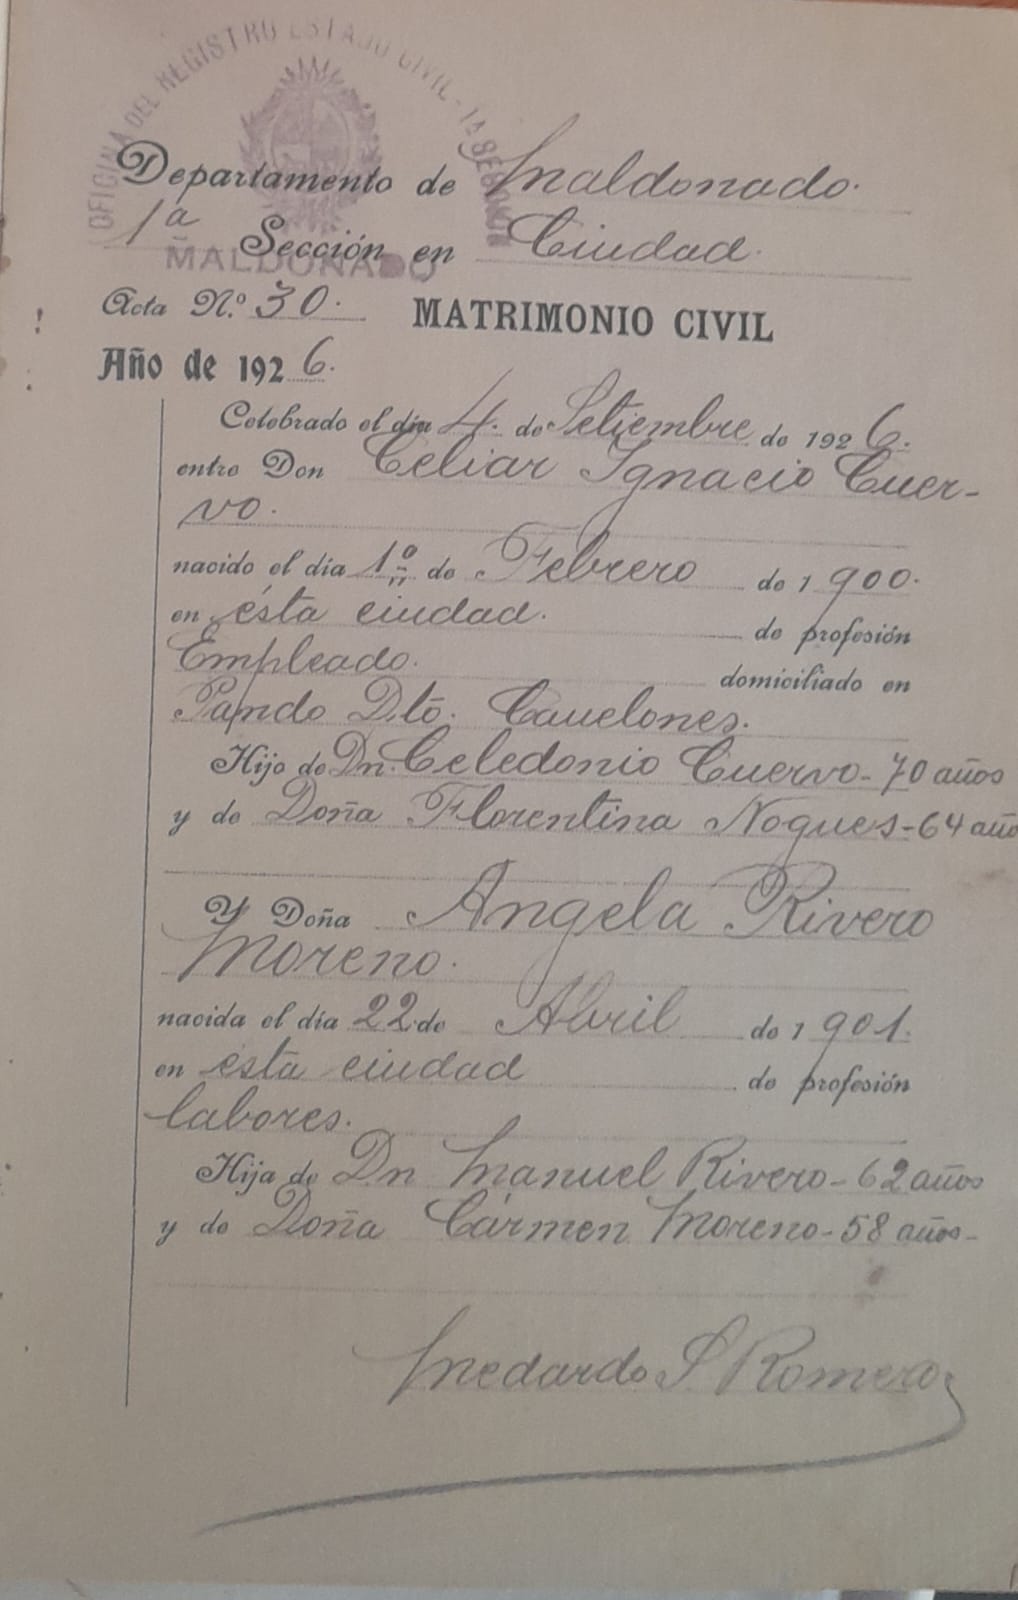 OFICINA DEL REGISTRO ESTADO CIVIL - 1ª SECCION
MALDONADO
Departamento de Maldonado.
1ª Sección en Ciudad.
Acta N.º 30. MATRIMONIO CIVIL
Año de 1926.
Celebrado el día 4. de Setiembre de 1926.
entre Don Celiar Ignacio Cuer-
vo.
nacido el día 1º de Febrero de 1900.
en ésta ciudad. de profesión
Empleado. domiciliado en
Pando Dtó. Canelones.
Hijo de Dn. Celedonio Cuervo - 70 años
y de Doña Florentina Nogues - 64 año
Y Doña Angela Rivero
Moreno.
nacida el día 22 de Abril de 1901.
en ésta ciudad de profesión
labores.
Hija de Dn Manuel Rivero - 62 años
y de Doña Cármen Moreno - 58 años -
Medardo S. Romero